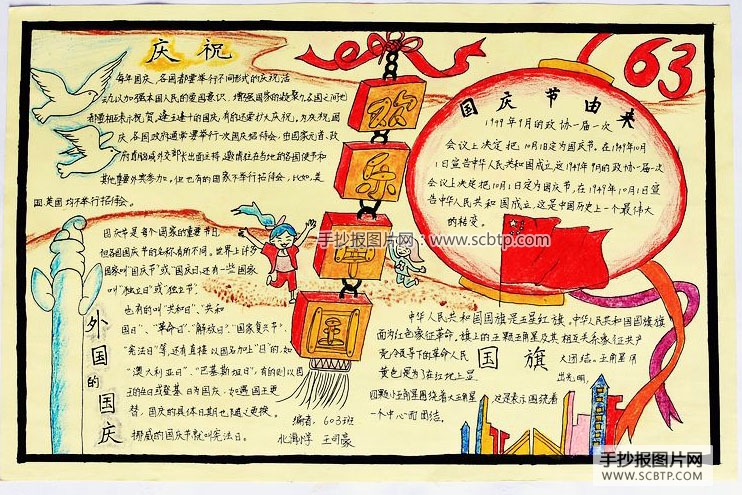 庆祝
每年国庆,各国都要举行不同形式的庆祝活
动,以加强本国人民的爱国意识,增强国家的凝聚力,各国之间也
都要相互表示祝贺,逢五逢十的国庆,有的还要扩大庆祝。为庆祝国
庆,各国政府通常要举行一次国庆招待会,由国家元首、政
府首脑或外交部长出面主持,邀请驻在当地的各国使节和
其他重要外宾参加。但也有的国家不举行招待会,比如,美
国、英国均不举行招待会。
欢
乐
中
国
63
国庆节由来
1949年9月的政协一届一次
会议上决定把10月1日定为国庆节,在1949年10月
1日宣告中华人民共和国成立,这1949年9月的政协一届一次
会议上决定把10月1日定为国庆节,在1949年10月1日宣
告中华人民共和国成立,这是中国历史上一个最伟大
的转变。
手抄报图片网:www.scbtp.com
外国的国庆
国庆节是每个国家的重要节日,
但各国国庆节的名称有所不同。世界上许多
国家叫"国庆节"或"国庆日",还有一些国家
叫"独立日"或"独立节"
也有的叫"共和日"、"共和
国日"、"革命日"、"解放日"、"国家复兴节"、
"宪法日"等,还有直接以国名加上"日"的,如
"澳大利亚日"、"巴基斯坦日",有的则以国
王的生日或登基日为国庆,如遇国王更
替,国庆的具体日期也随之更换。
挪威的国庆节就叫宪法日。
编者:603班
北滘小学 王可豪
国旗
中华人民共和国国旗是五星红旗。中华人民共和国国旗旗
面为红色象征革命。旗上的五颗五角星及其相互关系象征共产
党领导下的革命人民大团结。五角星用
黄色是为了在红地上显出光明,
四颗小五角星围绕着大五角星这是表示围绕着
一个中心而团结。
手抄报图片网
WWW.SCBTP.COM